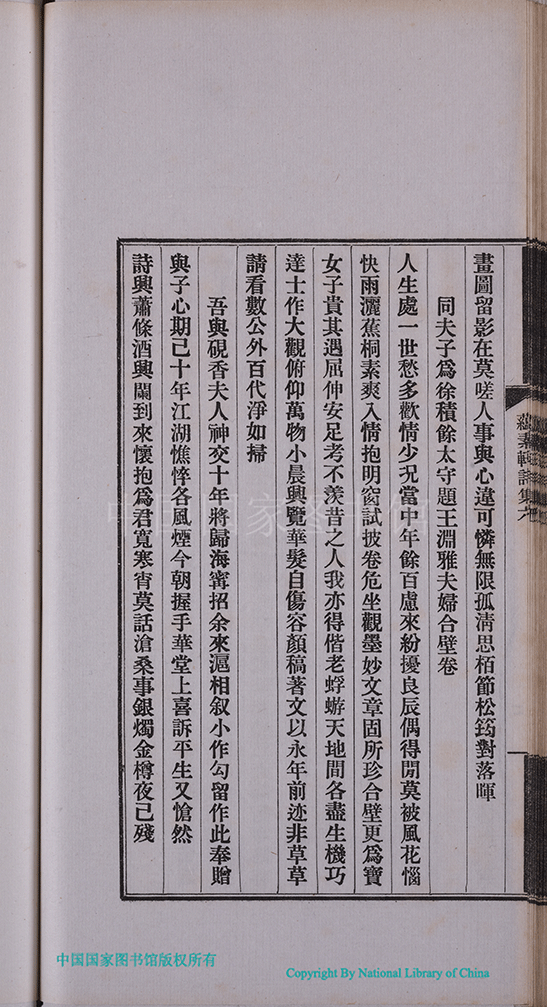 畫圖留影在莫嗟人事與心違可憐無限孤清思栢節松筠對落暉
同夫子爲徐積餘太守題王淵雅夫婦合璧卷
人生處一世愁多歡情少況當中年餘百慮來紛擾良辰偶得閒莫被風花惱
快雨灑蕉桐素爽入情抱明窗試披卷危坐觀墨妙文章固所珍合壁更爲寶
女子貴其遇屈伸安足考不羨昔之人我亦得偕老蜉蝣天地間各盡生機巧
達士作大觀俯仰萬物小晨興覽華髮自傷容顏稿著文以永年前迹非草草
請看數公外百代淨如掃
吾與硯香夫人神交十年將歸海甯招余來滬相叙小作勾留作此奉贈
與子心期已十年江湖憔悴各風煙今朝握手華堂上喜訴平生又愴然
詩興蕭條酒興闌到來懷抱爲君寬寒宵莫話滄桑事銀燭金樽夜已殘
蘊素軒詩集六
中国国家图书馆
中国国家图书馆版权所有
Copyright By National Library of China